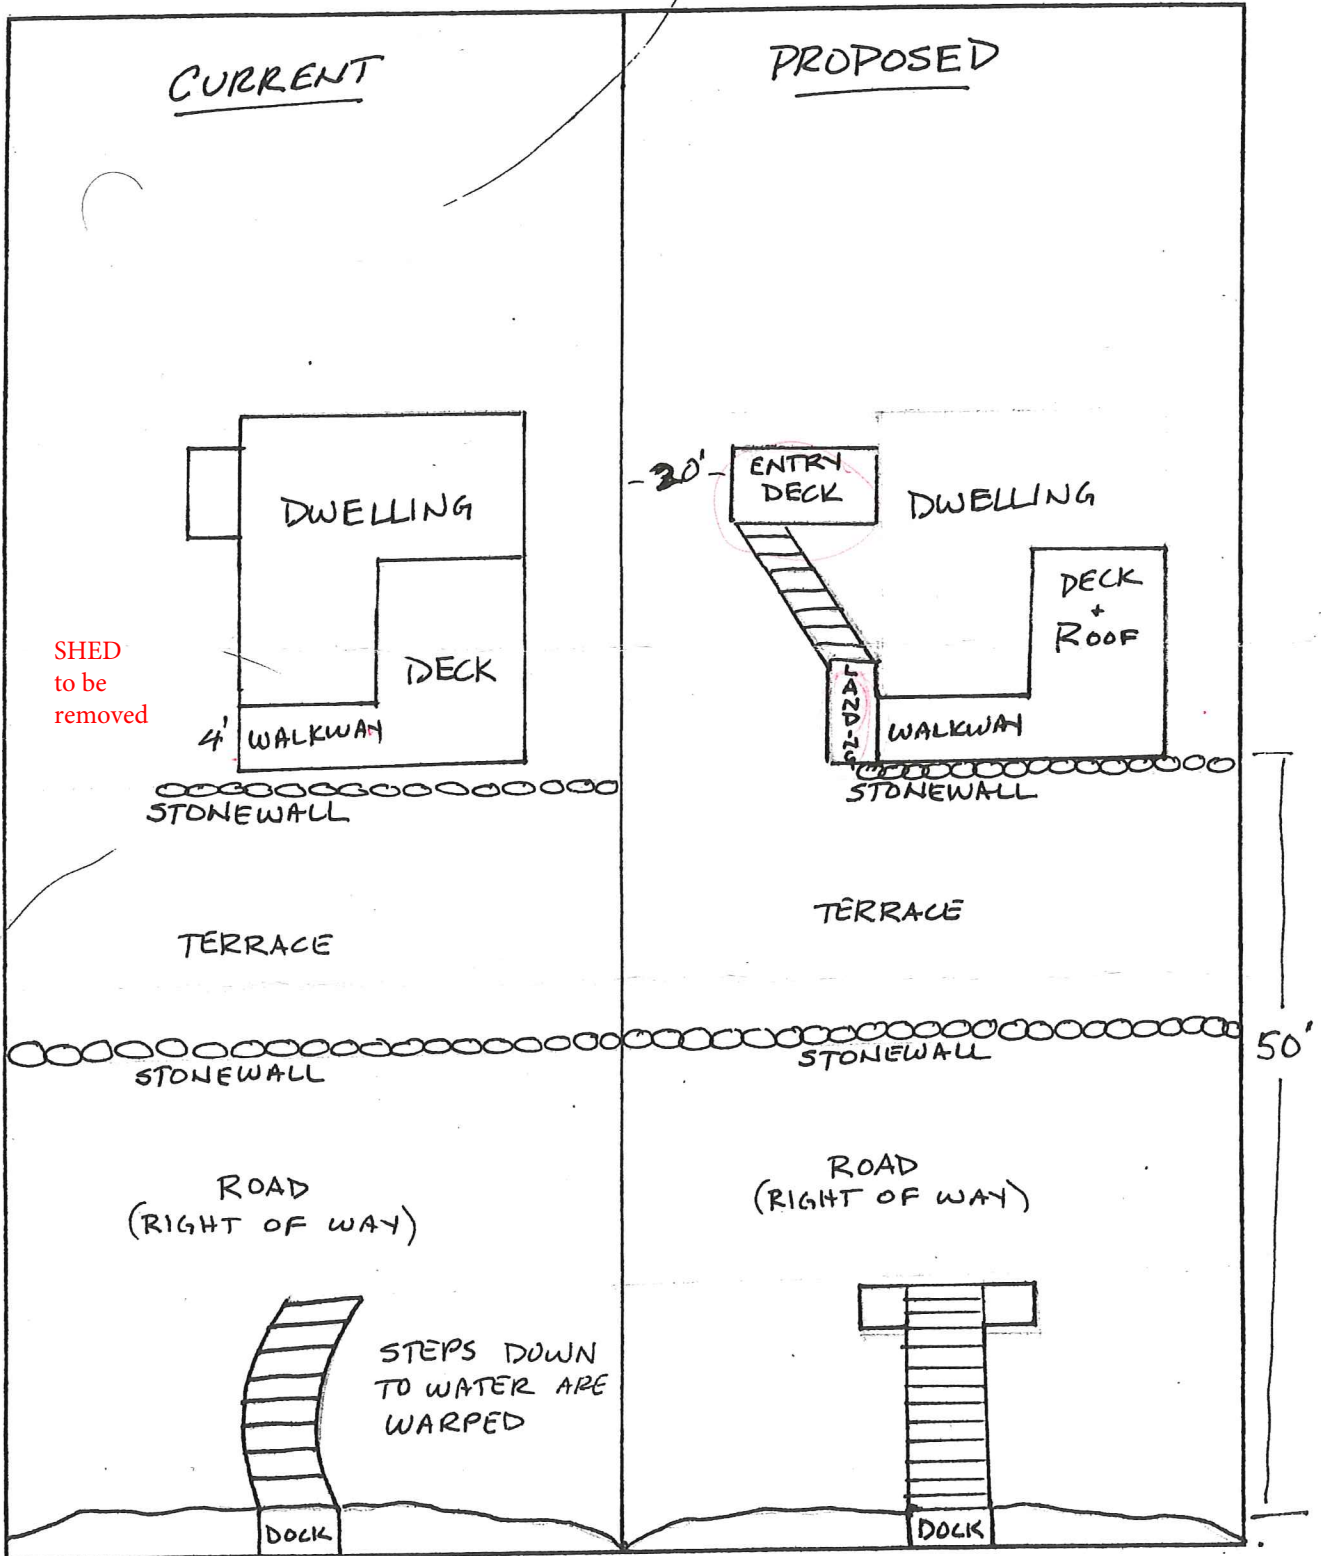 CURRENT
DWELLING
DECK
SHED
to be
removed
4' WALKWAY
STONEWALL
TERRACE
STONEWALL
ROAD
(RIGHT OF WAY)
STEPS DOWN
TO WATER ARE
WARPED
DOCK
PROPOSED
-20'-
ENTRY
DECK
DWELLING
DECK
+
ROOF
LANDING
WALKWAY
STONEWALL
TERRACE
STONEWALL
50'
ROAD
(RIGHT OF WAY)
DOCK